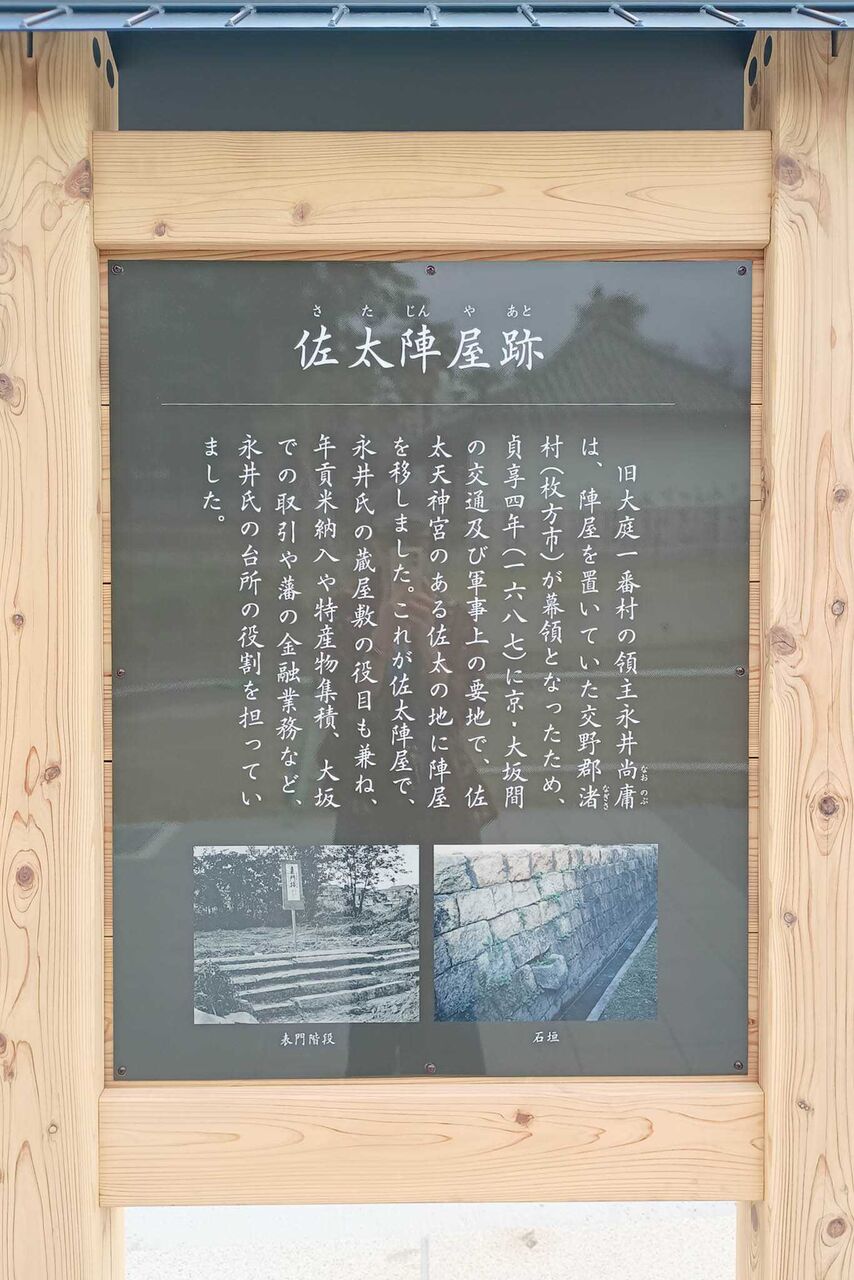 さたじんやあと
佐太陣屋跡
旧大庭一番村の領主永井尚庸
なおのぶ
は、陣屋を置いていた交野郡渚
なぎさ
村(枚方市)が幕領となったため、
貞享四年(一六八七)に京・大坂間
の交通及び軍事上の要地で、佐
太天神宮のある佐太の地に陣屋
を移しました。これが佐太陣屋で、
永井氏の蔵屋敷の役目も兼ね、
年貢米納入や特産物集積、大坂
での取引や藩の金融業務など、
永井氏の台所の役割を担ってい
ました。
表門跡
表門階段
石垣